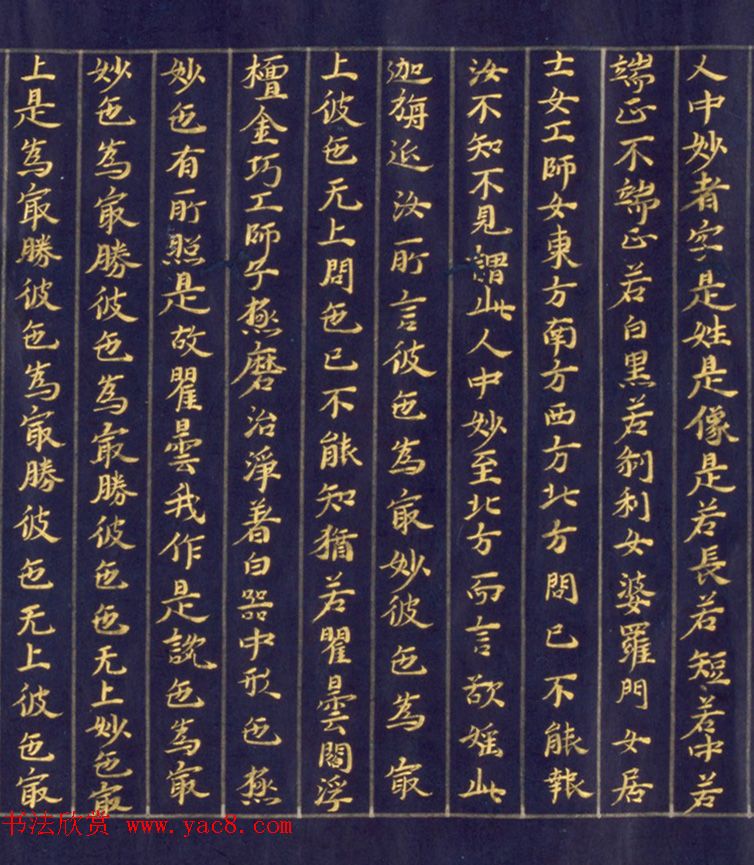 人中妙者字是姓是像是若長若短若中若
端正不端正若白黒若刹利女婆羅門女居
士女工師女東方南方西方北方問已不能報
汝不知不見謂此人中妙至北方而言欲婬此
迦旃延汝所言彼色為㝡妙彼色為㝡
上彼色无上問色已不能知猶若瞿曇閻浮
檀金巧工師子極磨治淨著白器中形色極
妙色有所照是故瞿曇我作是說色為㝡
妙色為㝡勝彼色為㝡勝彼色色无上妙色㝡
上是為㝡勝彼色為㝡勝彼色无上彼色㝡
书法欣赏 www.yac8.com